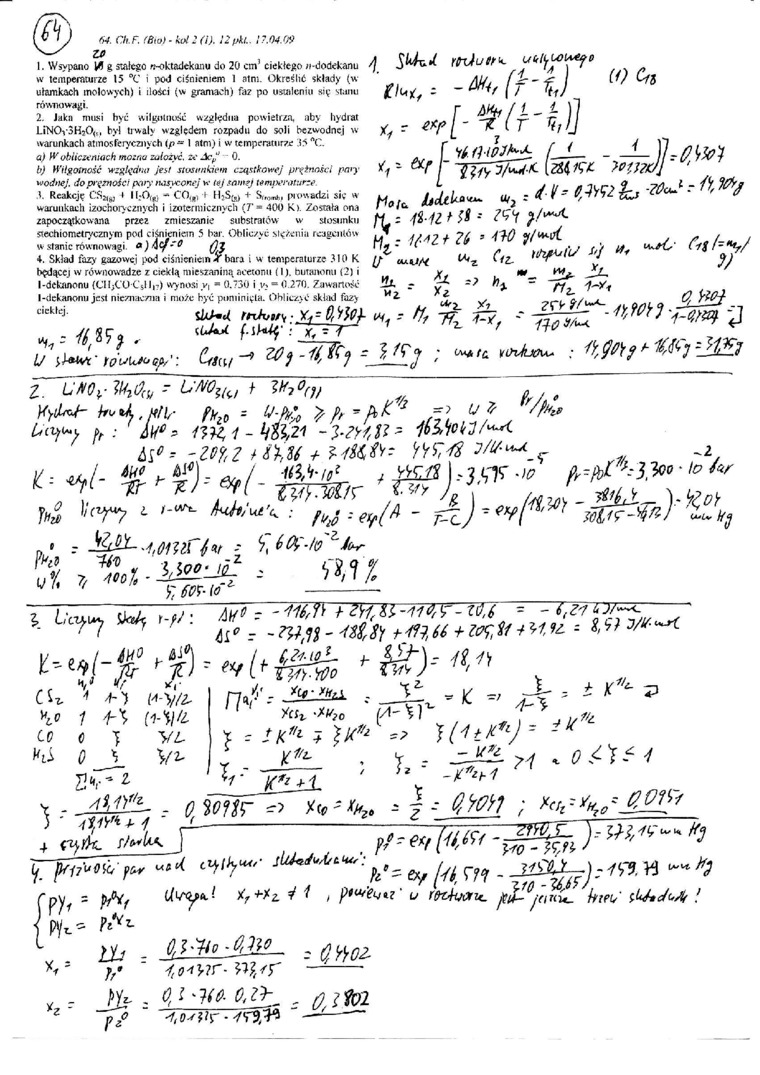 64
64. Ch.F. (Bio) - kol 2 (1), 12 pkt., 17.04.09
20
1. Wsypano g stałego n-oktadekanu do 20 cm³ ciekłego n-dodekanu
w temperaturze 15 °C i pod ciśnieniem 1 atm. Określić składy (w
ułamkach molowych) i ilości (w gramach) faz po ustaleniu się stanu
równowagi.
2. Jaka musi być wilgotność względna powietrza, aby hydrat
LiNO₃·3H₂O(s), był trwały względem rozpadu do soli bezwodnej w
warunkach atmosferycznych (p ≈ 1 atm) i w temperaturze 35 °C.
a) W obliczeniach można założyć, że Δcₚ° = 0.
b) Wilgotność względna jest stosunkiem cząstkowej prężności pary
wodnej, do prężności pary nasyconej w tej samej temperaturze.
3. Reakcję CS₂(g) + H₂O(g) = CO(g) + H₂S(g) + S(romb), prowadzi się w
warunkach izochorycznych i izotermicznych (T = 400 K). Została ona
zapoczątkowana przez zmieszanie substratów w stosunku
stechiometrycznym pod ciśnieniem 5 bar. Obliczyć stężenia reagentów
w stanie równowagi. a) Δcp°=0
0,3
4. Skład fazy gazowej pod ciśnieniem bara i w temperaturze 310 K
będącej w równowadze z ciekłą mieszaniną acetonu (1), butanonu (2) i
1-dekanonu (CH₃CO·C₈H₁₇) wynosi y₁ = 0.730 i y₂ = 0.270. Zawartość
1-dekanonu jest nieznaczna i może być pominięta. Obliczyć skład fazy
ciekłej.
1. Skład roztworu nasyconego
R ln x₁ = - ΔHt₁ (1/T - 1/Tt₁) (1) C₁₈
x₁ = exp[- ΔHt₁/R (1/T - 1/Tt₁)]
x₁ = exp[- 46.17·10³ J/mol / 8.314 J/mol·K (1/288,15K - 1/301,32K)] = 0,4307
Masa dodekanu m₂ = d·V = 0,7452 g/cm³ · 20cm³ = 14,904g
M₁ = 18·12+38 = 254 g/mol
M₂ = 12·12+26 = 170 g/mol
U masie m₂ C₁₂ rozpuści się n₁ moli C18 (=m₁/g)
n₁/n₂ = x₁/x₂ => n₁ = m₂/M₂ x₁/1-x₁
skład roztworu: x₁ = 0,4307
skład f. stałej: x₁ = 1
m₁ = M₁ m₂/M₂ x₁/1-x₁ = 254 g/mol / 170 g/mol · 14,904g · 0,4307/1-0,4307 =
m₁ = 16,85g.
W stanie równowagi: C₁₈(s) → 20g - 16,85g = 3,15g ; masa roztworu : 14,904g + 16,85g = 31,75g
2. LiNO₃·3H₂O(s) = LiNO₃(s) + 3H₂O(g)
Hydrat trwały, jeśli pH₂O = W·p°H₂O ≥ pr = p₀K^1/3 => W ≥ pr/p°H₂O
Liczymy pr : ΔH° = 1372,1 - 483,21 - 3·241,83 = 163,40 kJ/mol
ΔS° = -209,2 + 87,86 + 3·188,84 = 445,18 J/K·mol
K = exp(- ΔH°/RT + ΔS°/R) = exp(- 163,4·10³/8.314·308.15 + 445,18/8.314) = 3,595·10⁻⁵ pr = p₀K^1/3 = 3,300·10⁻² bar
p°H₂O liczymy z r-nia Antoine'a : p°H₂O = exp(A - B/T-C) = exp(18,304 - 3816,4/308,15-46,13) = 42,04 mm Hg
p°H₂O = 42,04/760 · 1,01325 bar = 5,605·10⁻² bar
W% ≥ 100% · 3,300·10⁻²/5,605·10⁻² = 58,9 %
3. Liczymy stałą r-gi: ΔH° = -116,94 + 241,83 - 110,5 - 20,6 = -6,21 kJ/mol
ΔS° = -237,98 - 188,84 + 197,66 + 205,81 + 31,92 = 8,57 J/K·mol
K = exp(- ΔH°/RT + ΔS°/R) = exp(+ 6,21·10³/8,314·400 + 8,57/8,314) = 18,14
CS₂ 1 1-ξ (1-ξ)/2
H₂O 1 1-ξ (1-ξ)/2
CO 0 ξ ξ/2
H₂S 0 ξ ξ/2
Σnᵢ = 2
Πaᵢ^νᵢ = xCO·xH₂S / xCS₂·xH₂O = ξ²/(1-ξ)² = K => ξ/1-ξ = ± K^1/2
ξ = ±K^1/2 ∓ ξK^1/2 => ξ(1±K^1/2) = ±K^1/2
ξ₁ = K^1/2/K^1/2+1 ; ξ₂ = -K^1/2/-K^1/2+1 >1 a 0≤ξ≤1
ξ = 18,14^1/2/18,14^1/2+1 = 0,80985 => xCO = xH₂O = ξ/2 = 0,4049 ; xCS₂ = xH₂O = 0,0951
+ czysta siarka
4. Prężności par nad czystymi składnikami:
p₁° = exp(16,651 - 2940,5/310-35,93) = 373,15 mm Hg
p₂° = exp(16,599 - 3150,4/310-36,65) = 159.79 mm Hg
py₁ = p₁°x₁
py₂ = p₂°x₂
Uwaga! x₁+x₂ ≠ 1, ponieważ w roztworze jest jeszcze trzeci składnik!
x₁ = py₁/p₁° = 0,3·760·0,730/1,01325·373,15 = 0,4402
x₂ = py₂/p₂° = 0,3·760·0,27/1,01325·159,79 = 0,3802